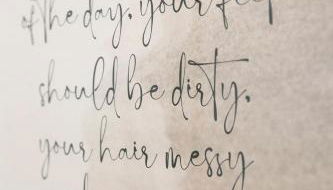 of the day, your feet
should be dirty,
your hair messy